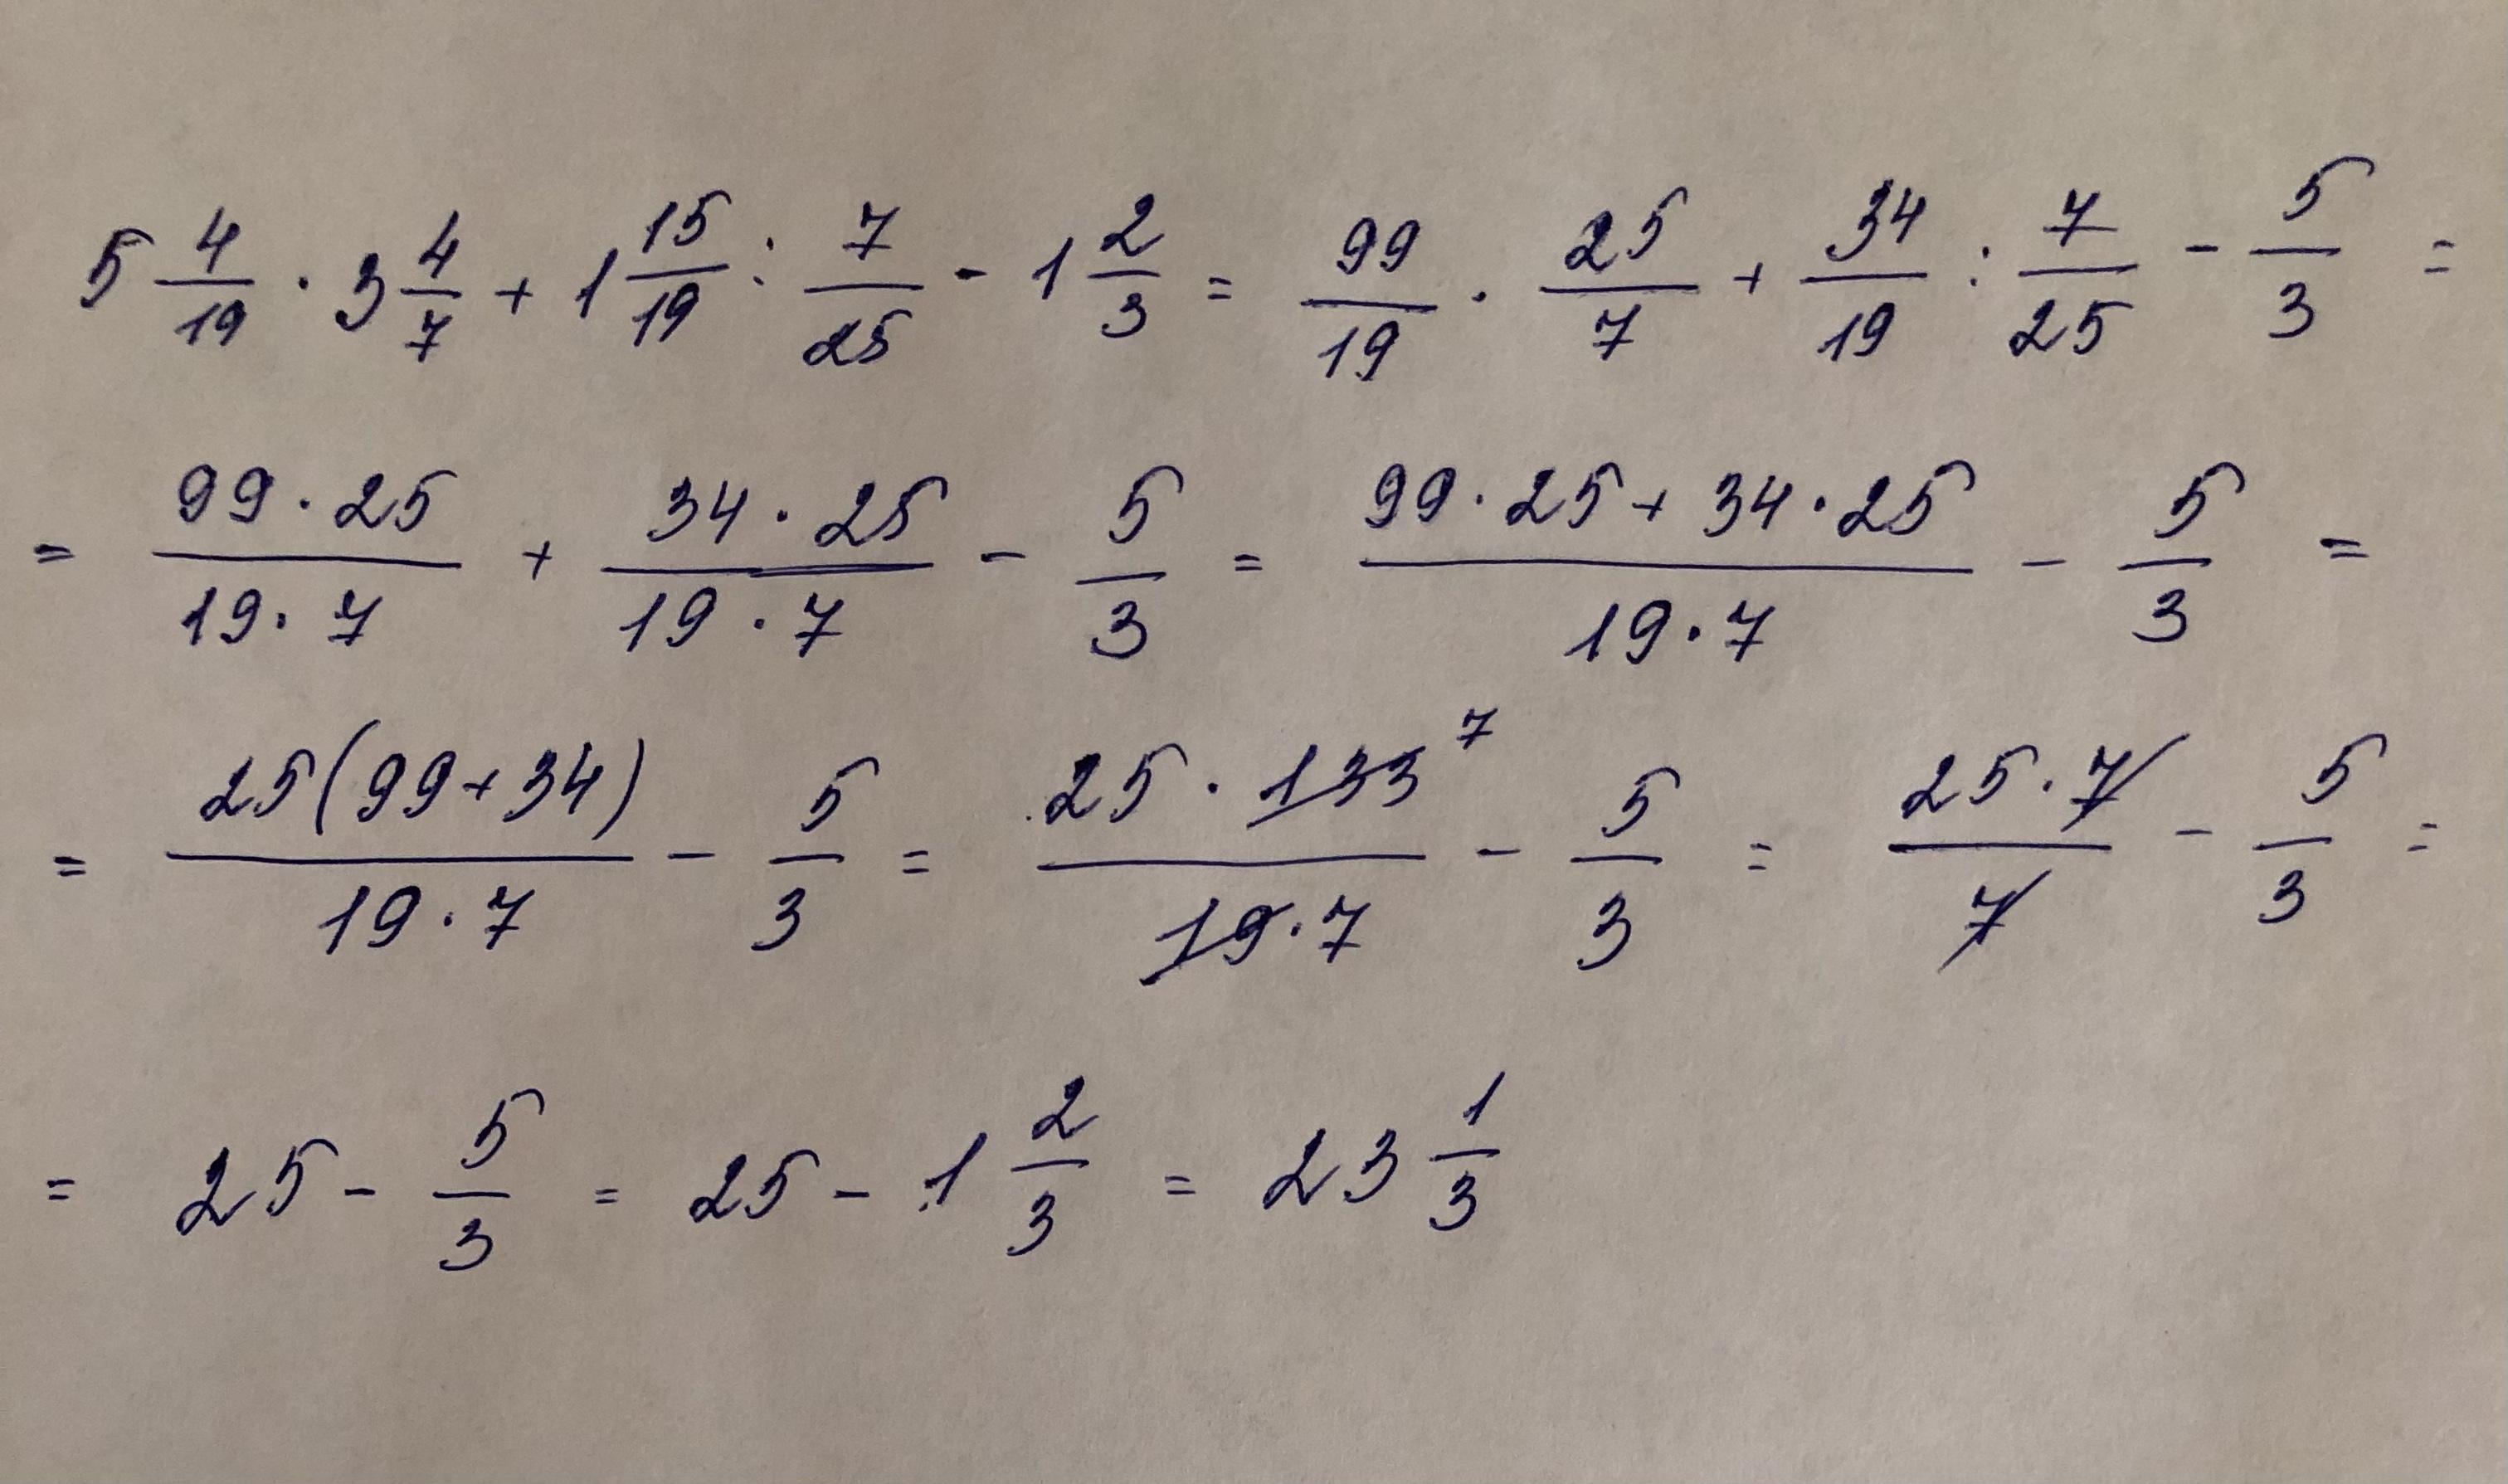 5 4/19 · 3 4/7 + 1 15/19 : 7/25 - 1 2/3 = 99/19 · 25/7 + 34/19 : 7/25 - 5/3 =
= 99 · 25/19 · 7 + 34 · 25/19 · 7 - 5/3 = 99 · 25 + 34 · 25/19 · 7 - 5/3 =
= 25(99+34)/19 · 7 - 5/3 = 25 · 133 7/19 · 7 - 5/3 = 25 · 7/7 - 5/3 =
= 25 - 5/3 = 25 - 1 2/3 = 23 1/3